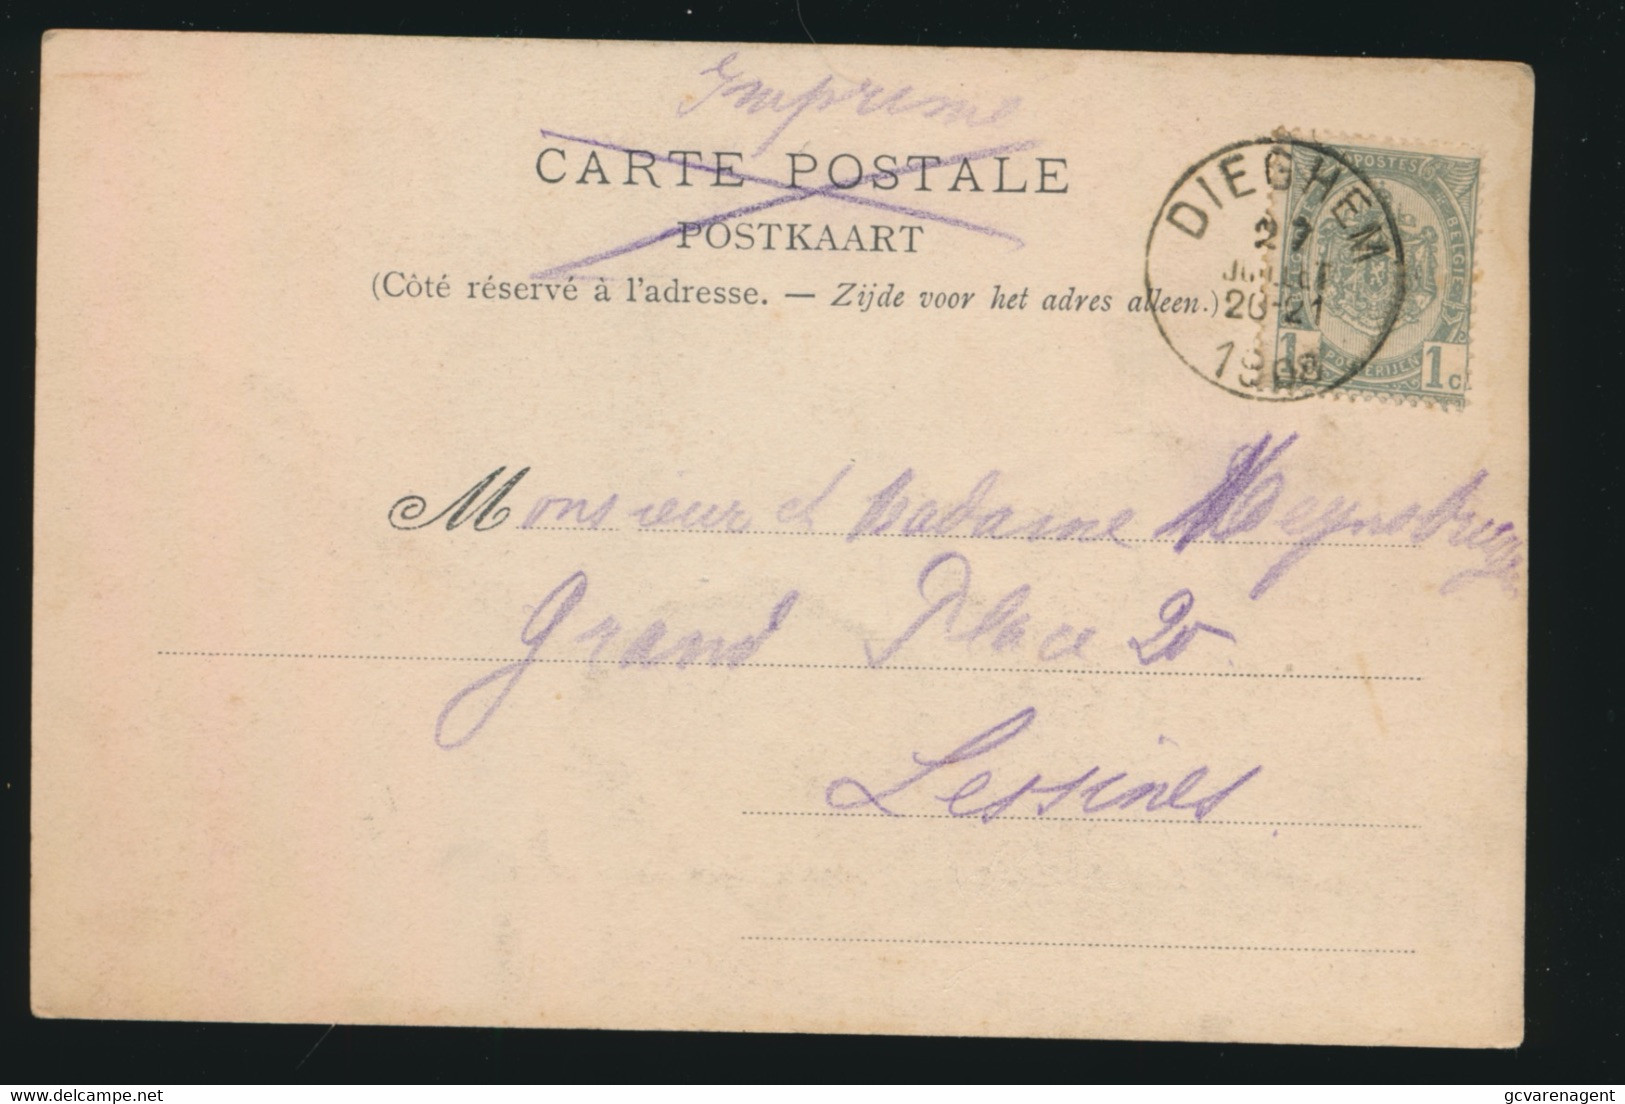 Imprime
CARTE POSTALE
POSTKAART
(Côté réservé à l'adresse. — Zijde voor het adres alleen.)
DIEGHEM
JUILLET
20-21
1908
POSTES
BELGIË
POSTERIJEN
1 1c
Monsieur et Madame
Grand Place 20
Lessines.
gcvarenagent